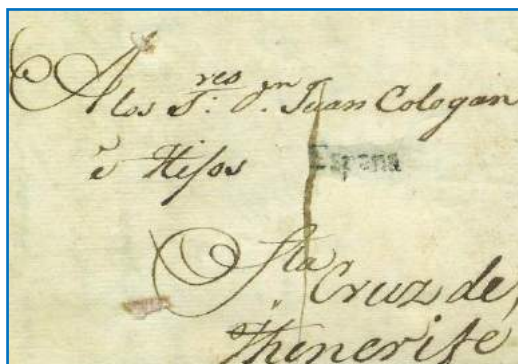 A los S.res D.n Juan Cologan
è Hijos España
Sta Cruz de
Thenerife